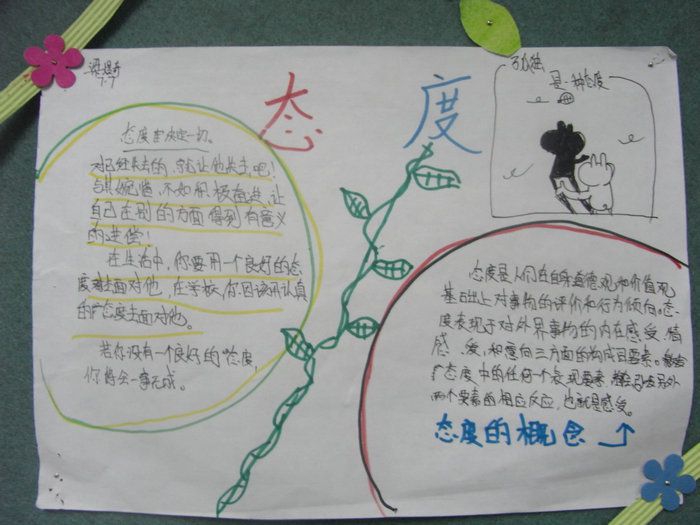 态 度
态度决定一切。
对已经失去的，就让他失去吧！
与其婉惜，不如积极奋进，让
自己在别的方面得到有意义
的进偿！
在生活中，你要用一个良好的态
度去面对他，在学校，你因该用认真
的态度去面对他。
若你没有一个良好的态度，
你将会一事无成。
孤独
是一种态度
态度是人们在自身道德观和价值观
基础上对事物的评价和行为倾向。态
度表现于对外界事物的内在感受、情
感、爱，和意向三方面的构成要素。
态度中的任何一个表现要素，
两个要素的相应反应，也就是感受。
态度的概念